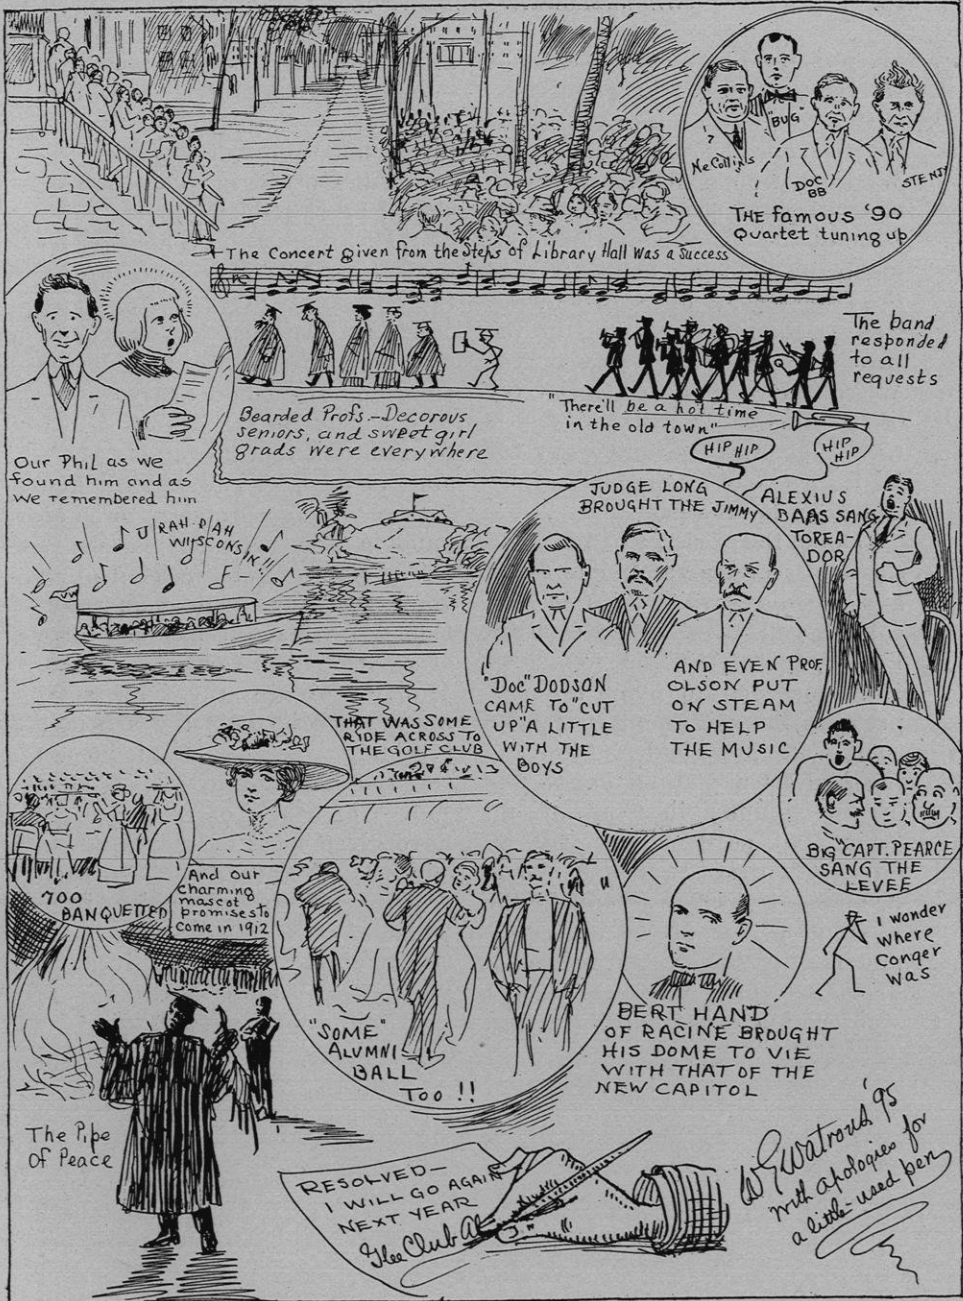 "BUG"
McCollins
DOC
BB
STENJ
THE famous '90
Quartet tuning up
The Concert given from the Steps of Library Hall Was a Success
The band
responded
to all
requests
Bearded Profs.-Decorous
seniors, and sweet girl
grads were everywhere
"There'll be a hot time
in the old town"
HIP HIP
HIP
HIP
Our Phil as we
found him and as
We remembered him
U RAH-RAH
WISCONSIN!!
UW
JUDGE LONG
BROUGHT THE JIMMY
ALEXIUS
BAAS SANG
TOREA-
DOR
"DOC" DODSON
CAME TO "CUT
UP" A LITTLE
WITH THE
BOYS
AND EVEN PROF.
OLSON PUT
ON STEAM
TO HELP
THE MUSIC
THAT WAS SOME
RIDE ACROSS TO
THE GOLF CLUB
700
BANQUETTED
And our
charming
mascot
promises to
come in 1912
BIG "CAPT. PEARCE
SANG THE
LEVEE
I wonder
where
Conger
was
"SOME"
ALUMNI
BALL
TOO !!
BERT HAND
OF RACINE BROUGHT
HIS DOME TO VIE
WITH THAT OF THE
NEW CAPITOL
The Pipe
Of Peace
RESOLVED-
I WILL GO AGAIN
NEXT YEAR
Glee Club Al
WGWatrous '95
with apologies for
a little used pen